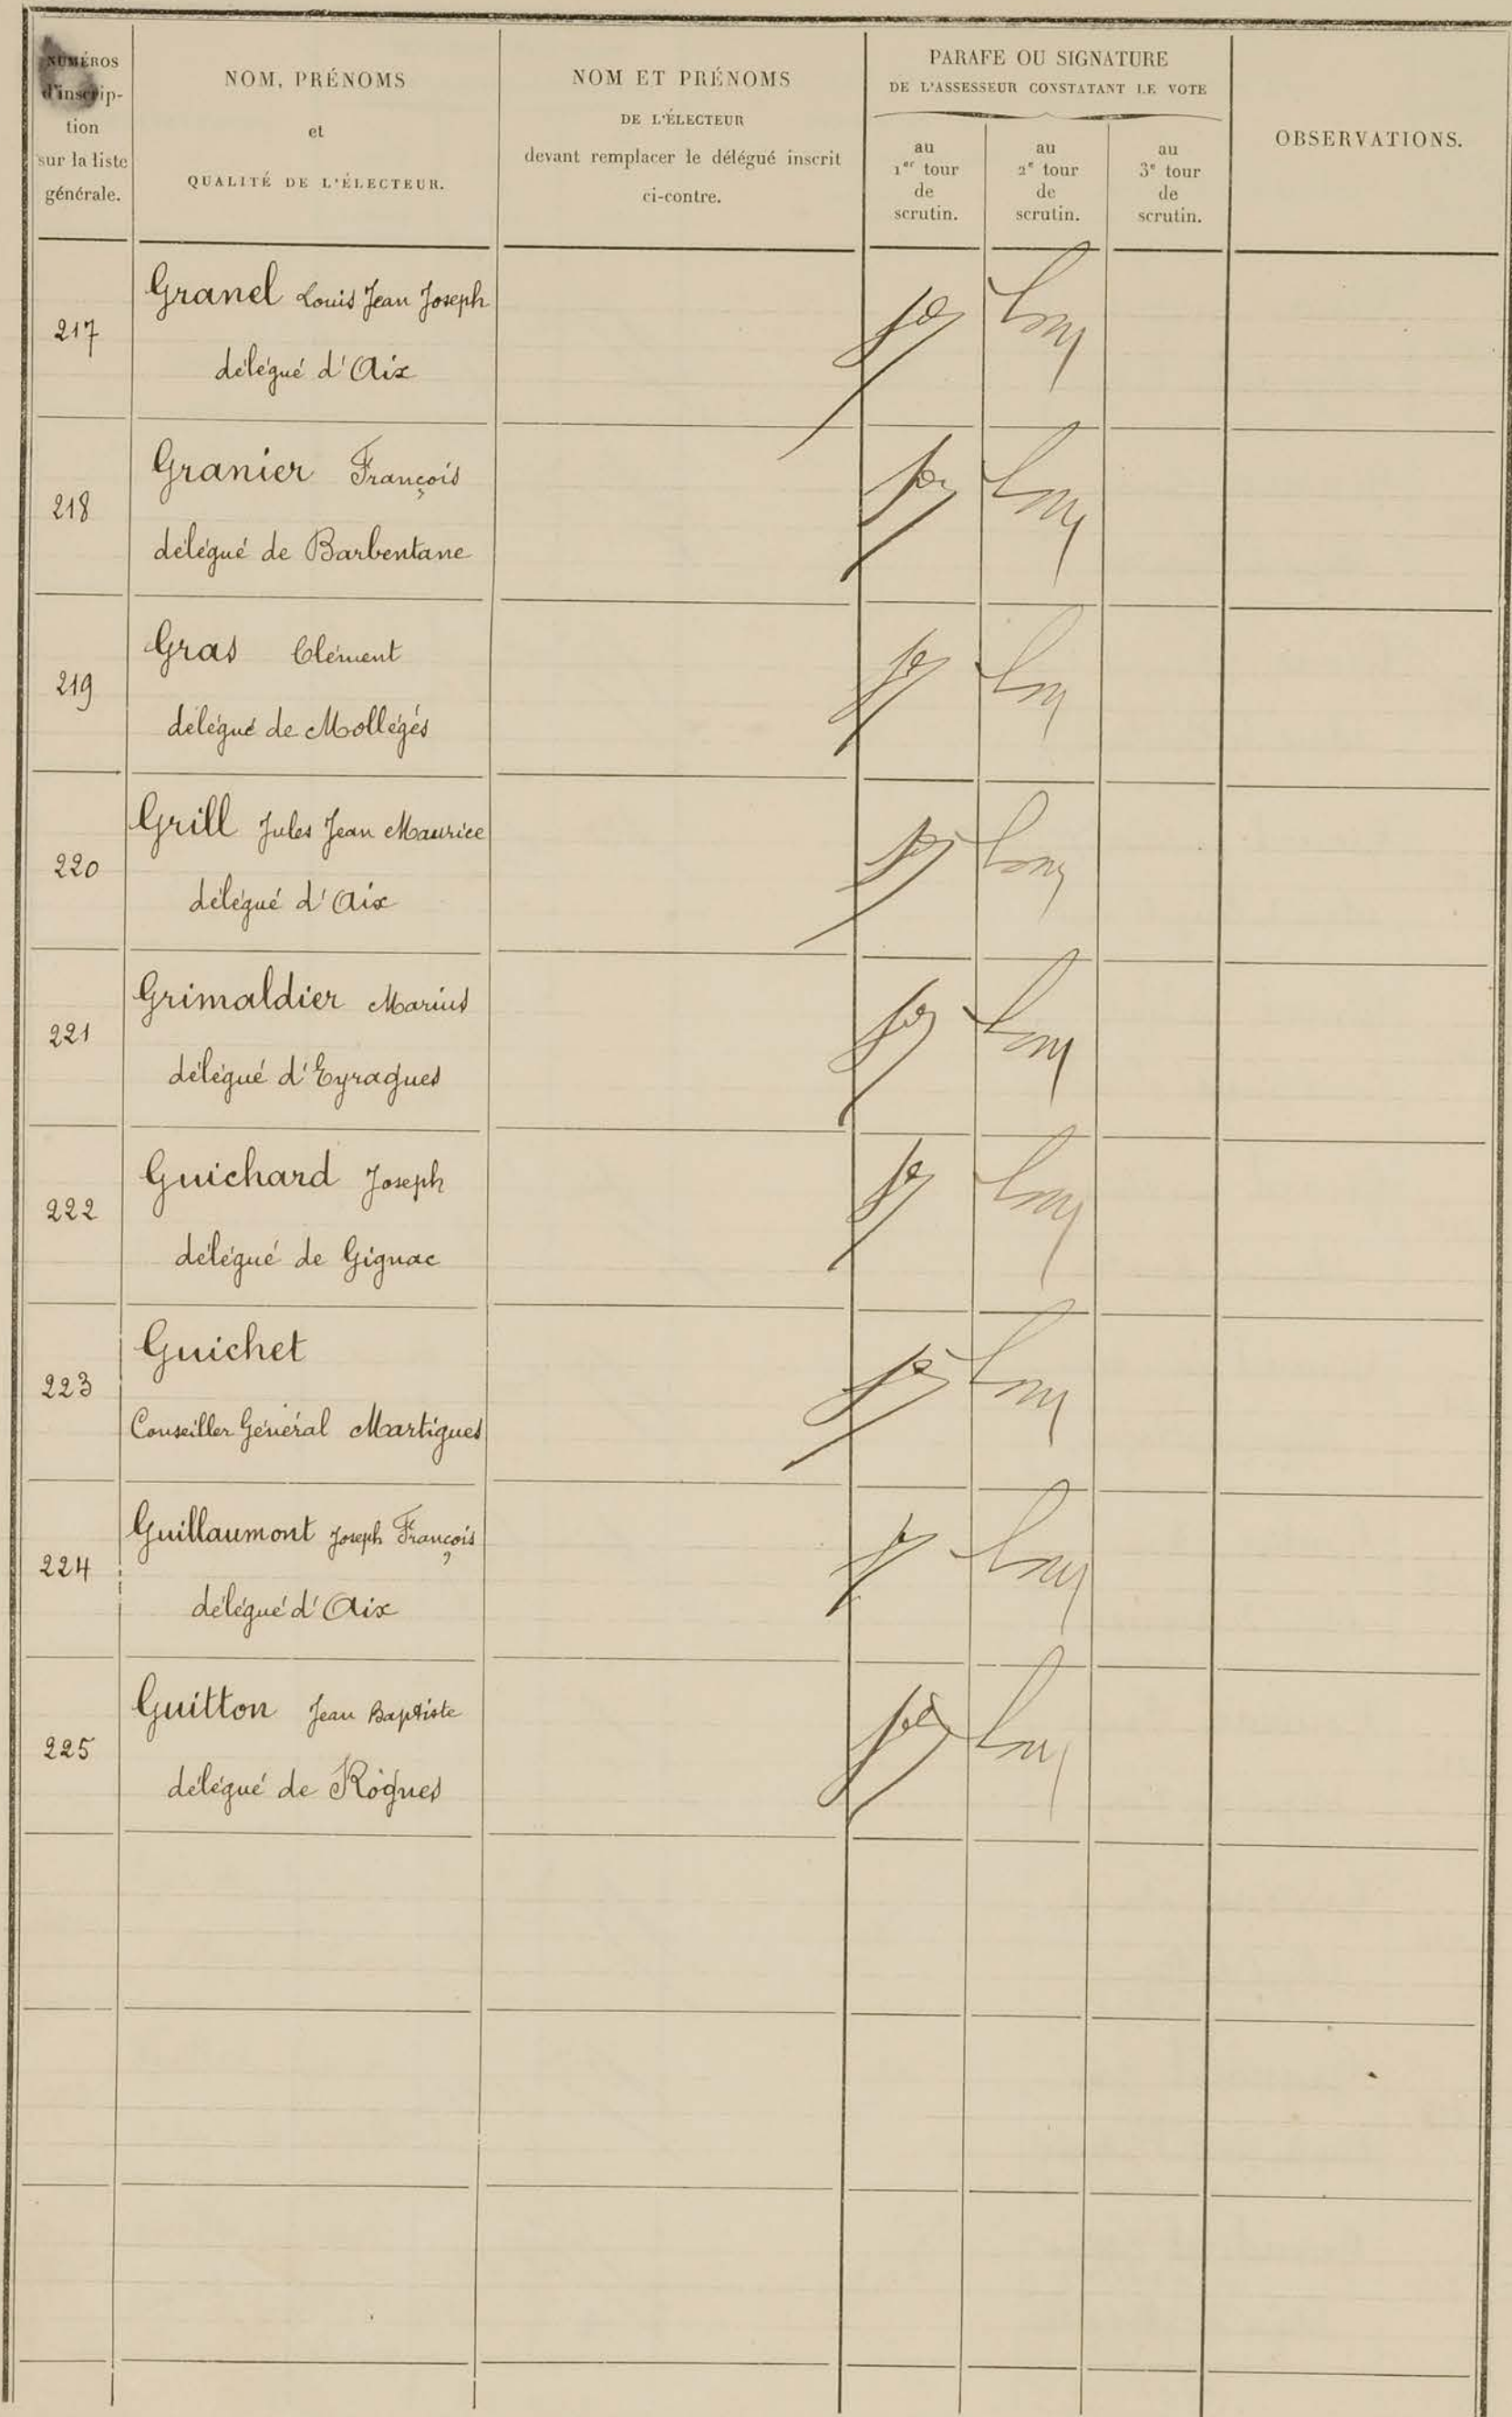 NUMÉROS
d'inscrip-
tion
sur la liste
générale.
NOM, PRÉNOMS
et
QUALITÉ DE L'ÉLECTEUR.
NOM ET PRÉNOMS
DE L'ÉLECTEUR
devant remplacer le délégué inscrit
ci-contre.
PARAFE OU SIGNATURE
DE L'ASSESSEUR CONSTATANT LE VOTE
au
1er tour
de
scrutin.
au
2e tour
de
scrutin.
au
3e tour
de
scrutin.
OBSERVATIONS.
217
Granel Louis Jean Joseph
délégué d'Aix
218
Granier François
délégué de Barbentane
219
Gras Clément
délégué de Mollégés
220
Grill Jules Jean Maurice
délégué d'Aix
221
Grimaldier Marius
délégué d'Eyragues
222
Guichard Joseph
délégué de Gignac
223
Guichet
Conseiller Général Martigues
224
Guillaumont Joseph François
délégué d'Aix
225
Guitton Jean Baptiste
délégué de Rognes